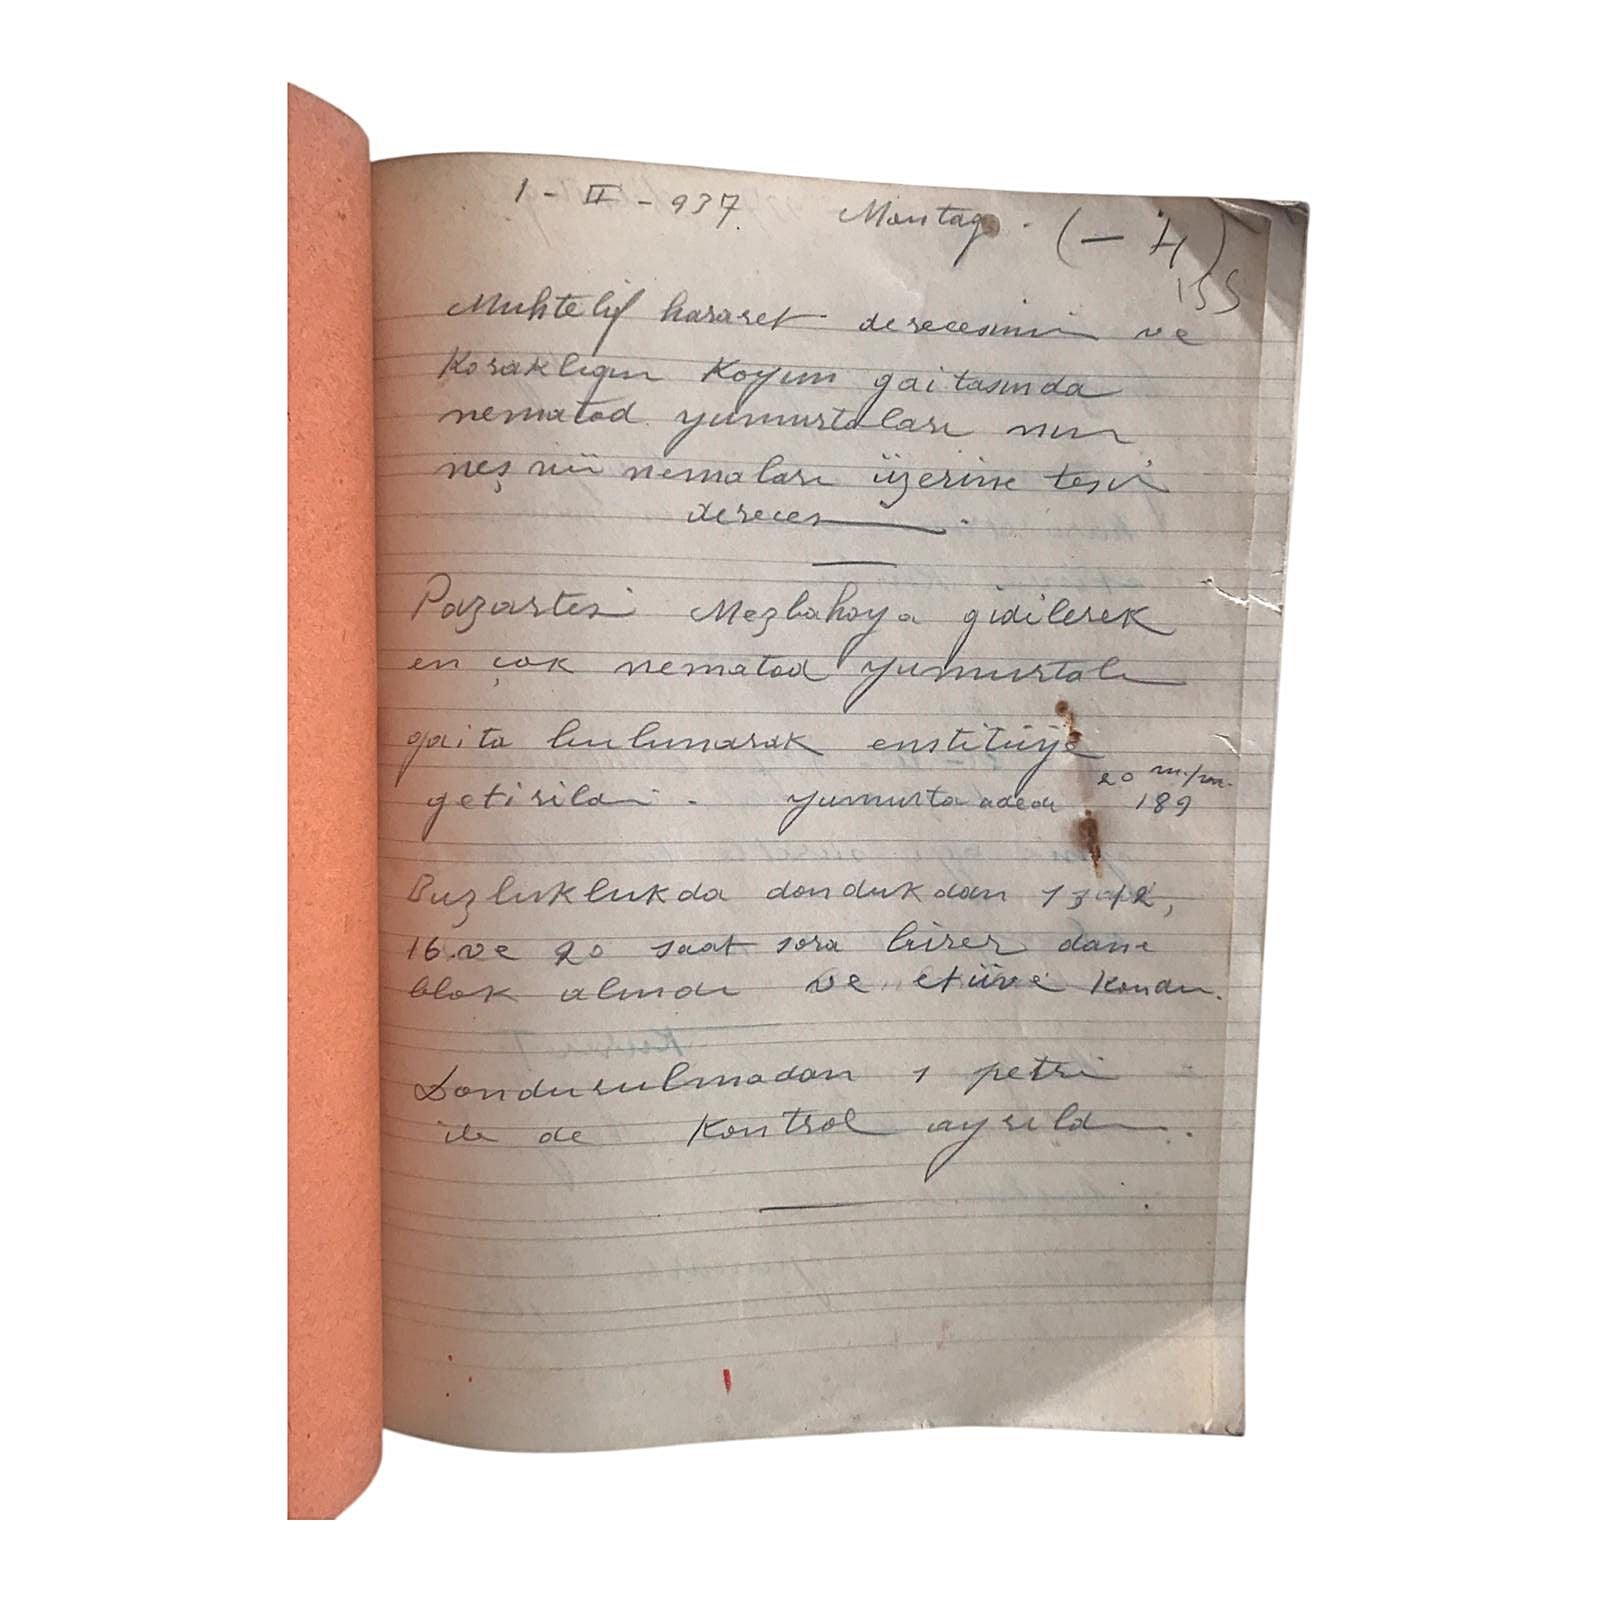 1 - II - 937. Montag. (- 4)
155
Muhtelif hararet derecesinin ve
Koraklıgın Koyun gaitasında
nematod yumurtaları nın
neş vü nemaları üzerine tesir
derecesi.
Pazartesi Mezbahaya gidilerek
en çok nematod yumurtalı
gaita bulunarak enstitüye
getirildi. yumurta adedi 20 m/m. 189
Buzluklukda dondukdan
16. ve 20 saat sora birer dane
blok alındı ve etüve Kondu.
Dondurulmadan 1 petri
de Kontrol ayrıldı.